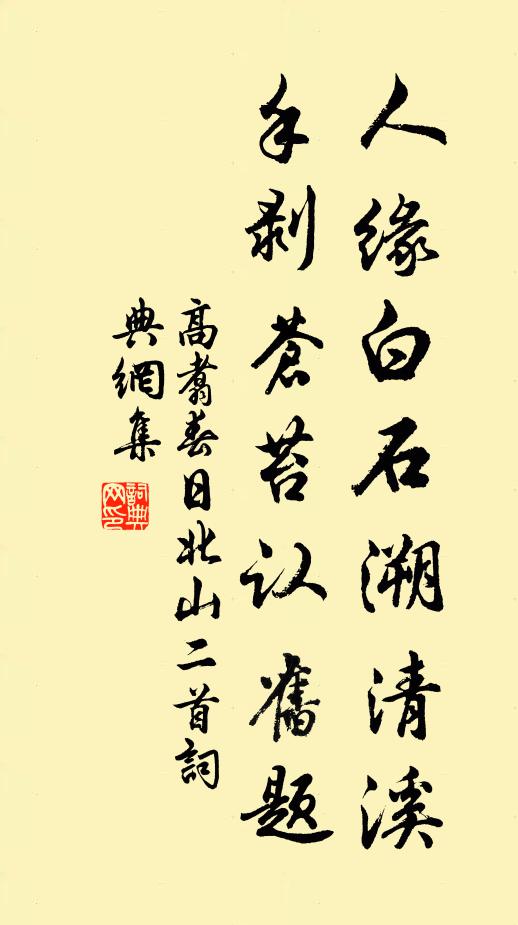 人緣白石溯清溪
手剥蒼苔认舊题
高翥春日北山二首詞
典網集
詞典网印